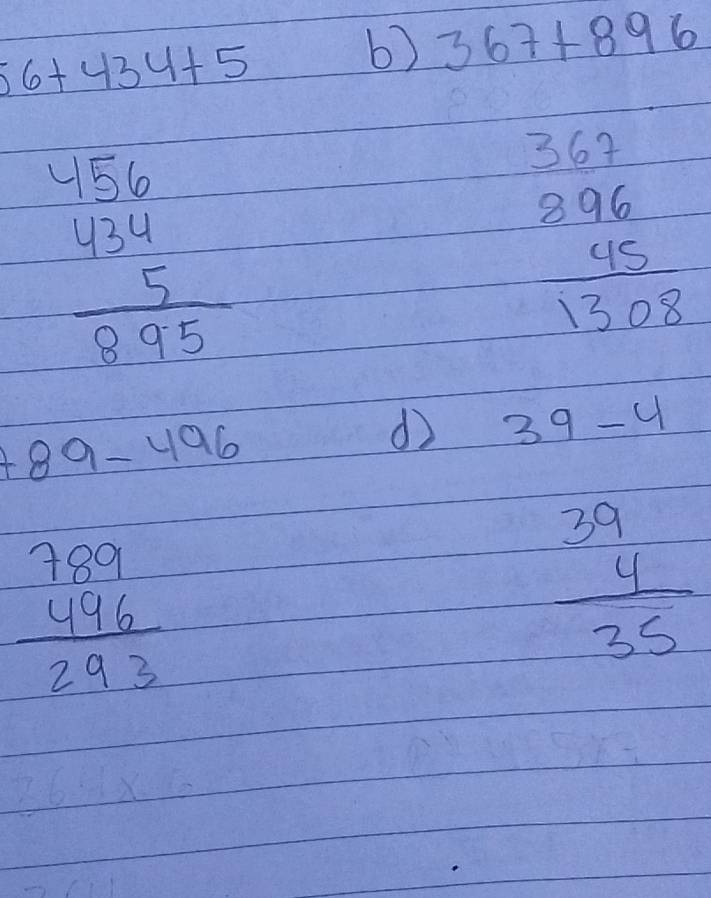 56+434+5
b) 367+896
456
434
5
895
367
896
45
1308
789-496
d) 39-4
789
496
293
39
4
35